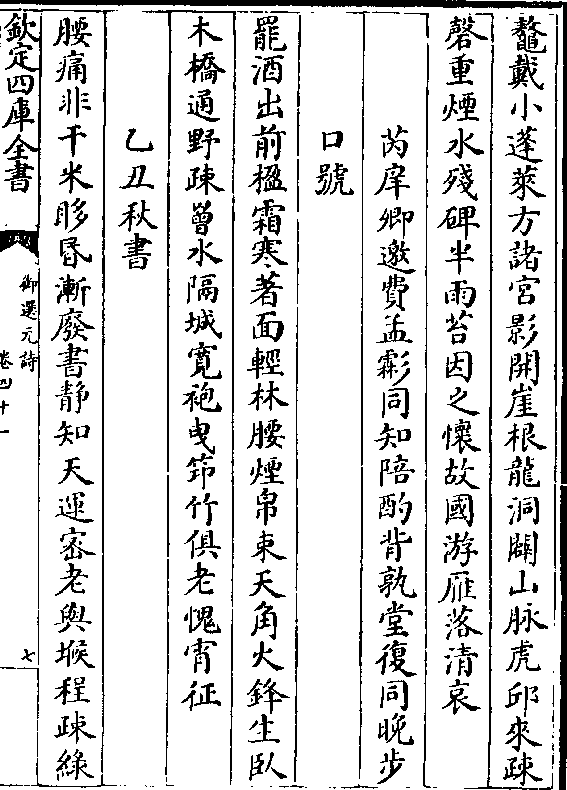 鼇戴小蓬萊方諸宫影開崖根龍洞闢山脉虎邱來疎
磬重煙水殘碑半雨苔因之懷故國游雁落清哀
芮庠卿邀費孟霦同知陪酌背孰堂復同晚步
口號
罷酒出前楹霜寒著面輕林腰煙帛束天角火鋒生臥
木橋通野疎罾水隔城寛袍曳笻竹俱老愧宵征
乙丑秋書
腰痛非干米眵昬漸廢書静知天運密老與堠程疎綠
欽定四庫全書
御選元詩
卷四十一
七